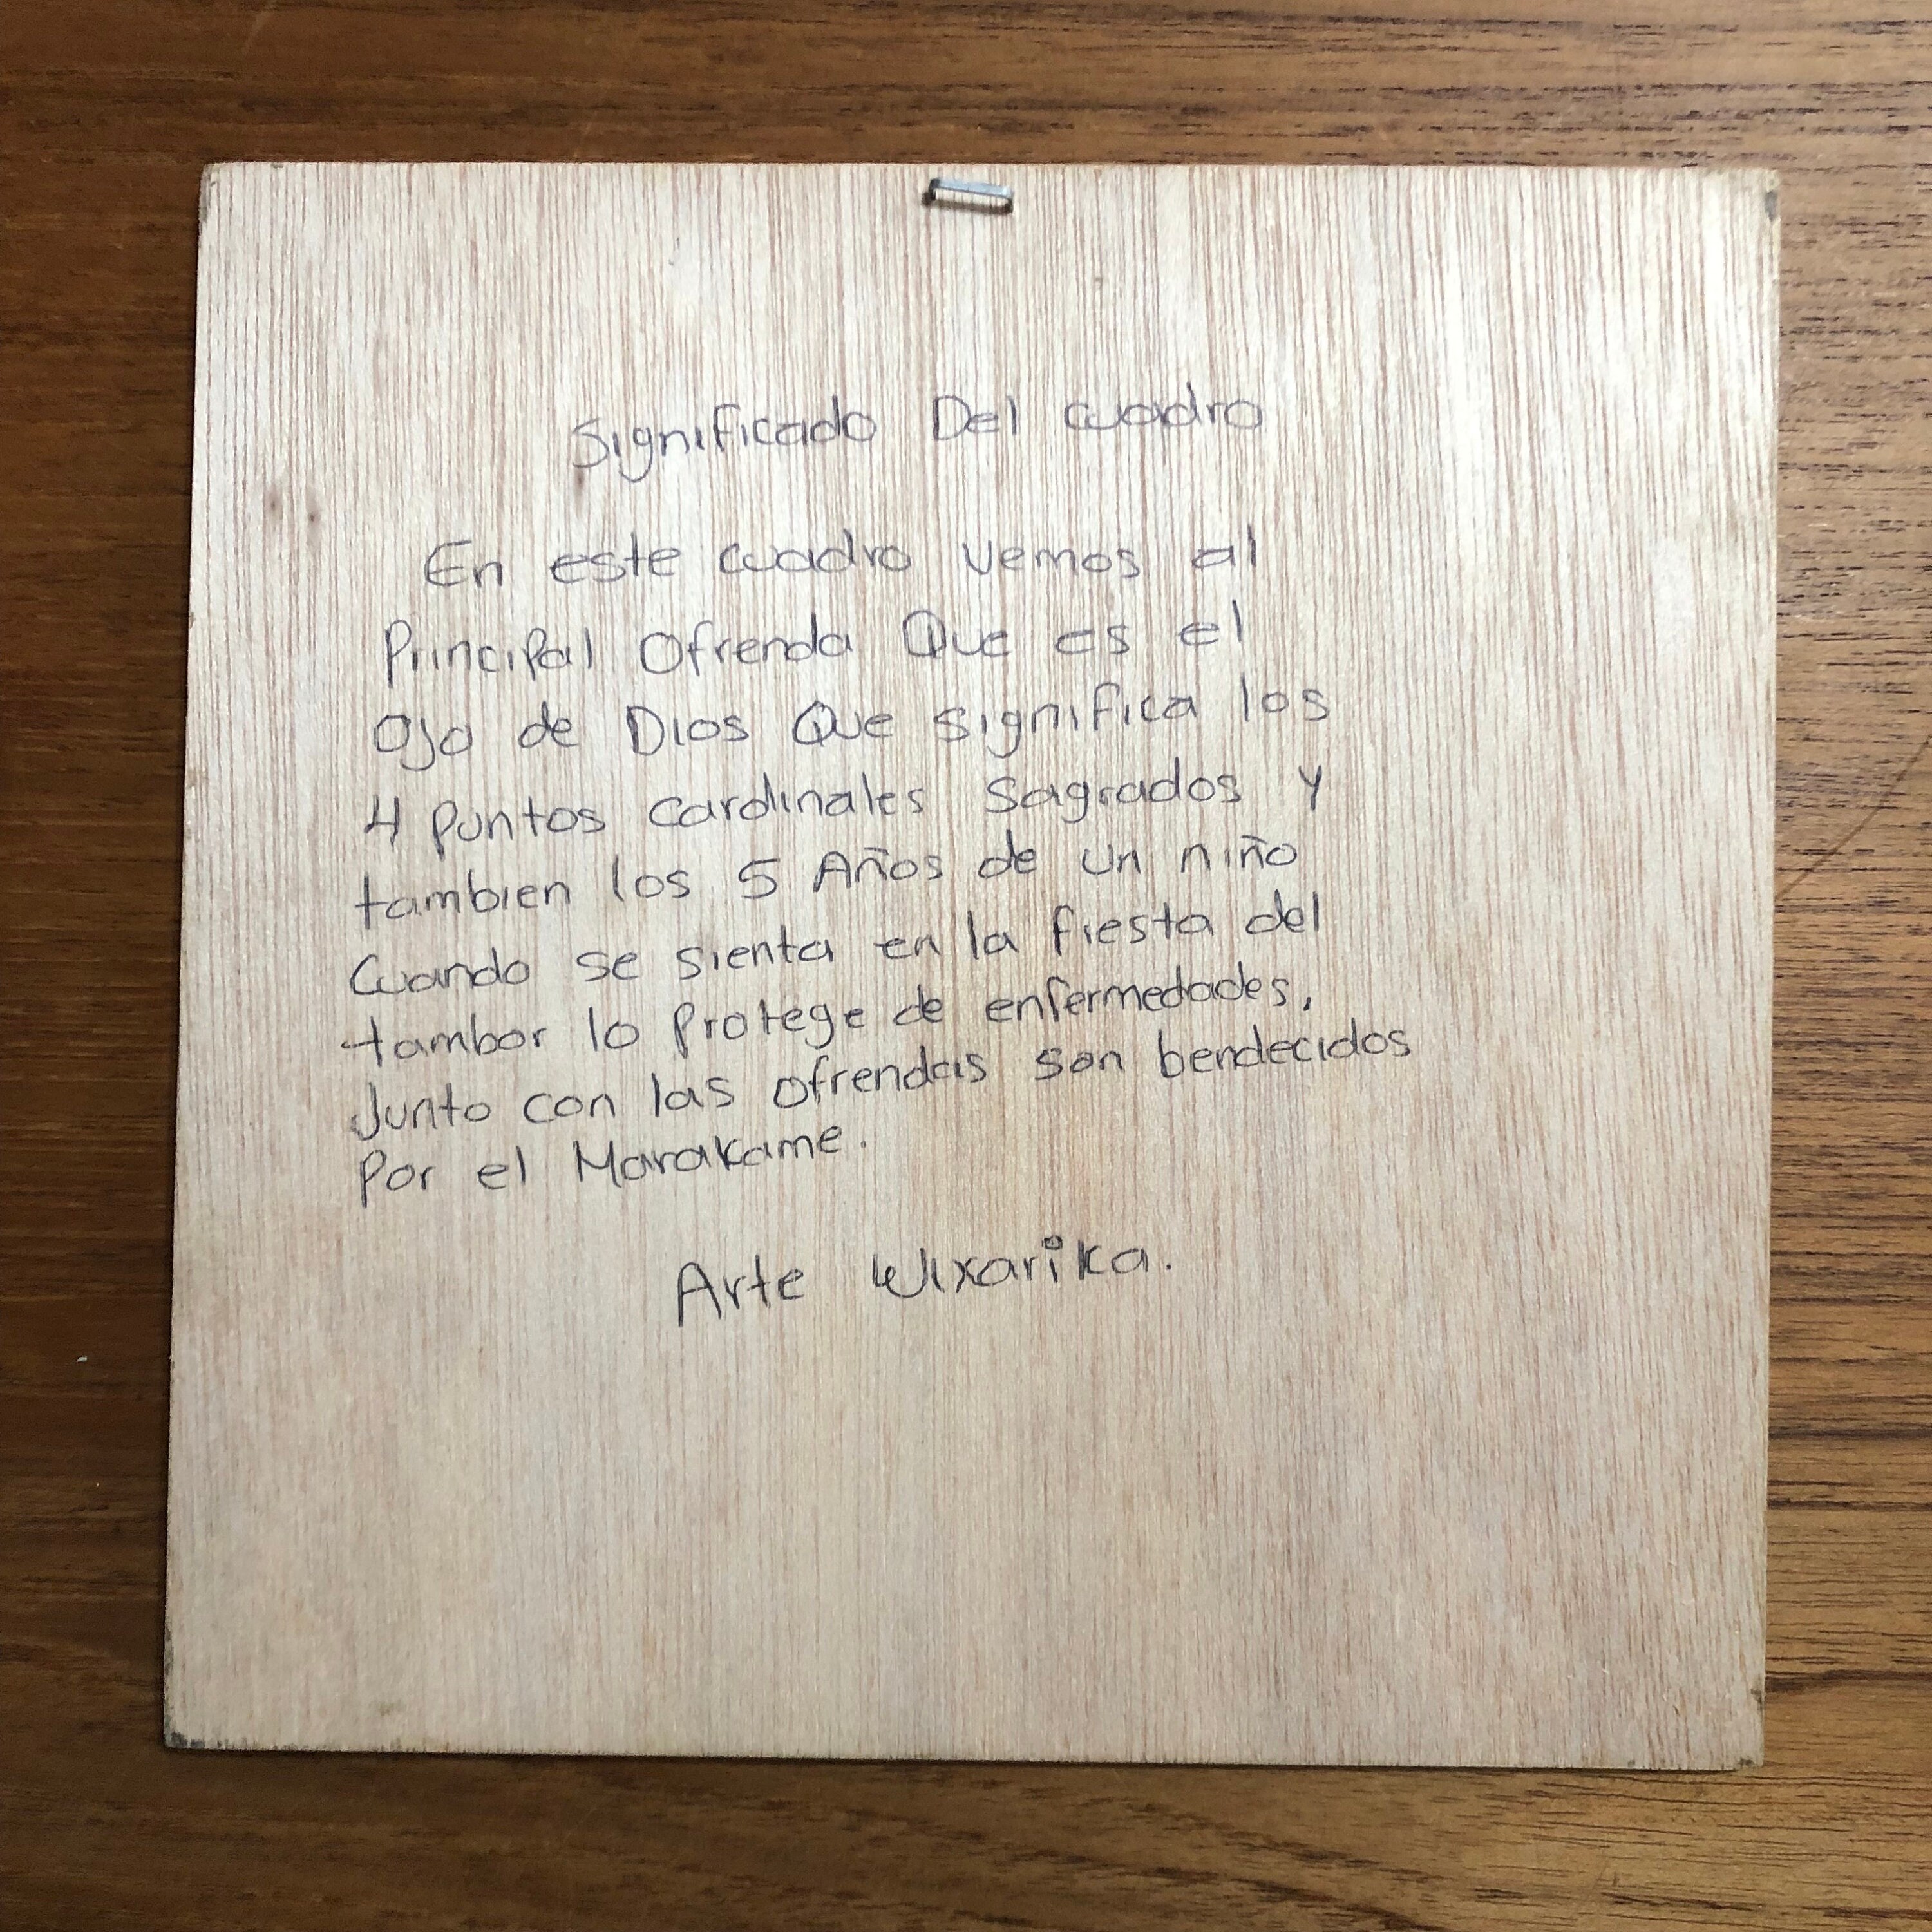 Significado Del cuadro
En este cuadro vemos al
Principal Ofrenda Que es el
Ojo de Dios Que significa los
4 puntos cardinales Sagrados y
tambien los 5 Años de un niño
Cuando se sienta en la fiesta del
tambor lo protege de enfermedades,
Junto con las ofrendas son bendecidos
Por el Marakame.
Arte Wixarika.